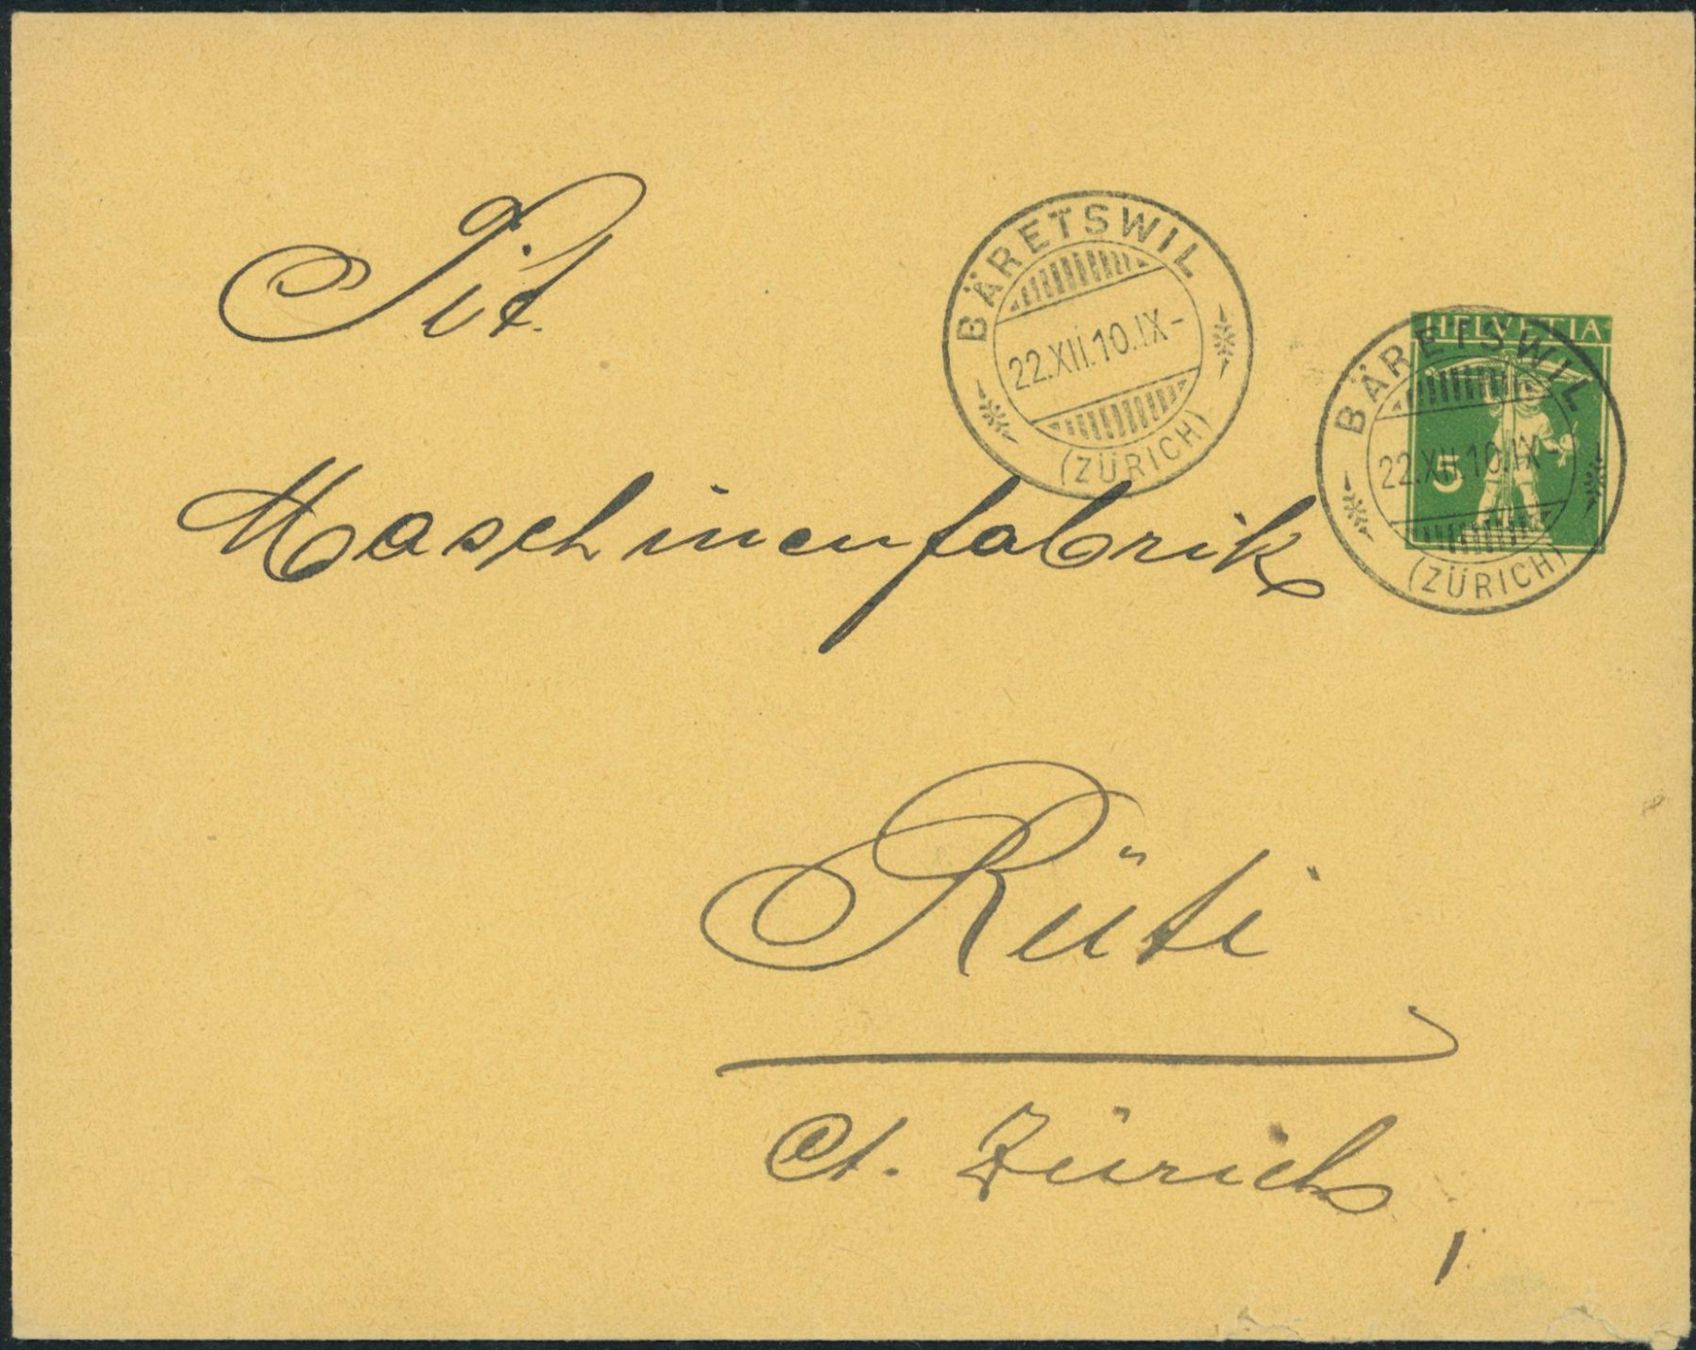 Tit.
BÄRETSWIL
22.XII.10.IX-
(ZÜRICH)
HELVETIA
5
BÄRETSWIL
22.XII.10.IX-
(ZÜRICH)
Maschinenfabrik
Rüti
Ct. Zürich